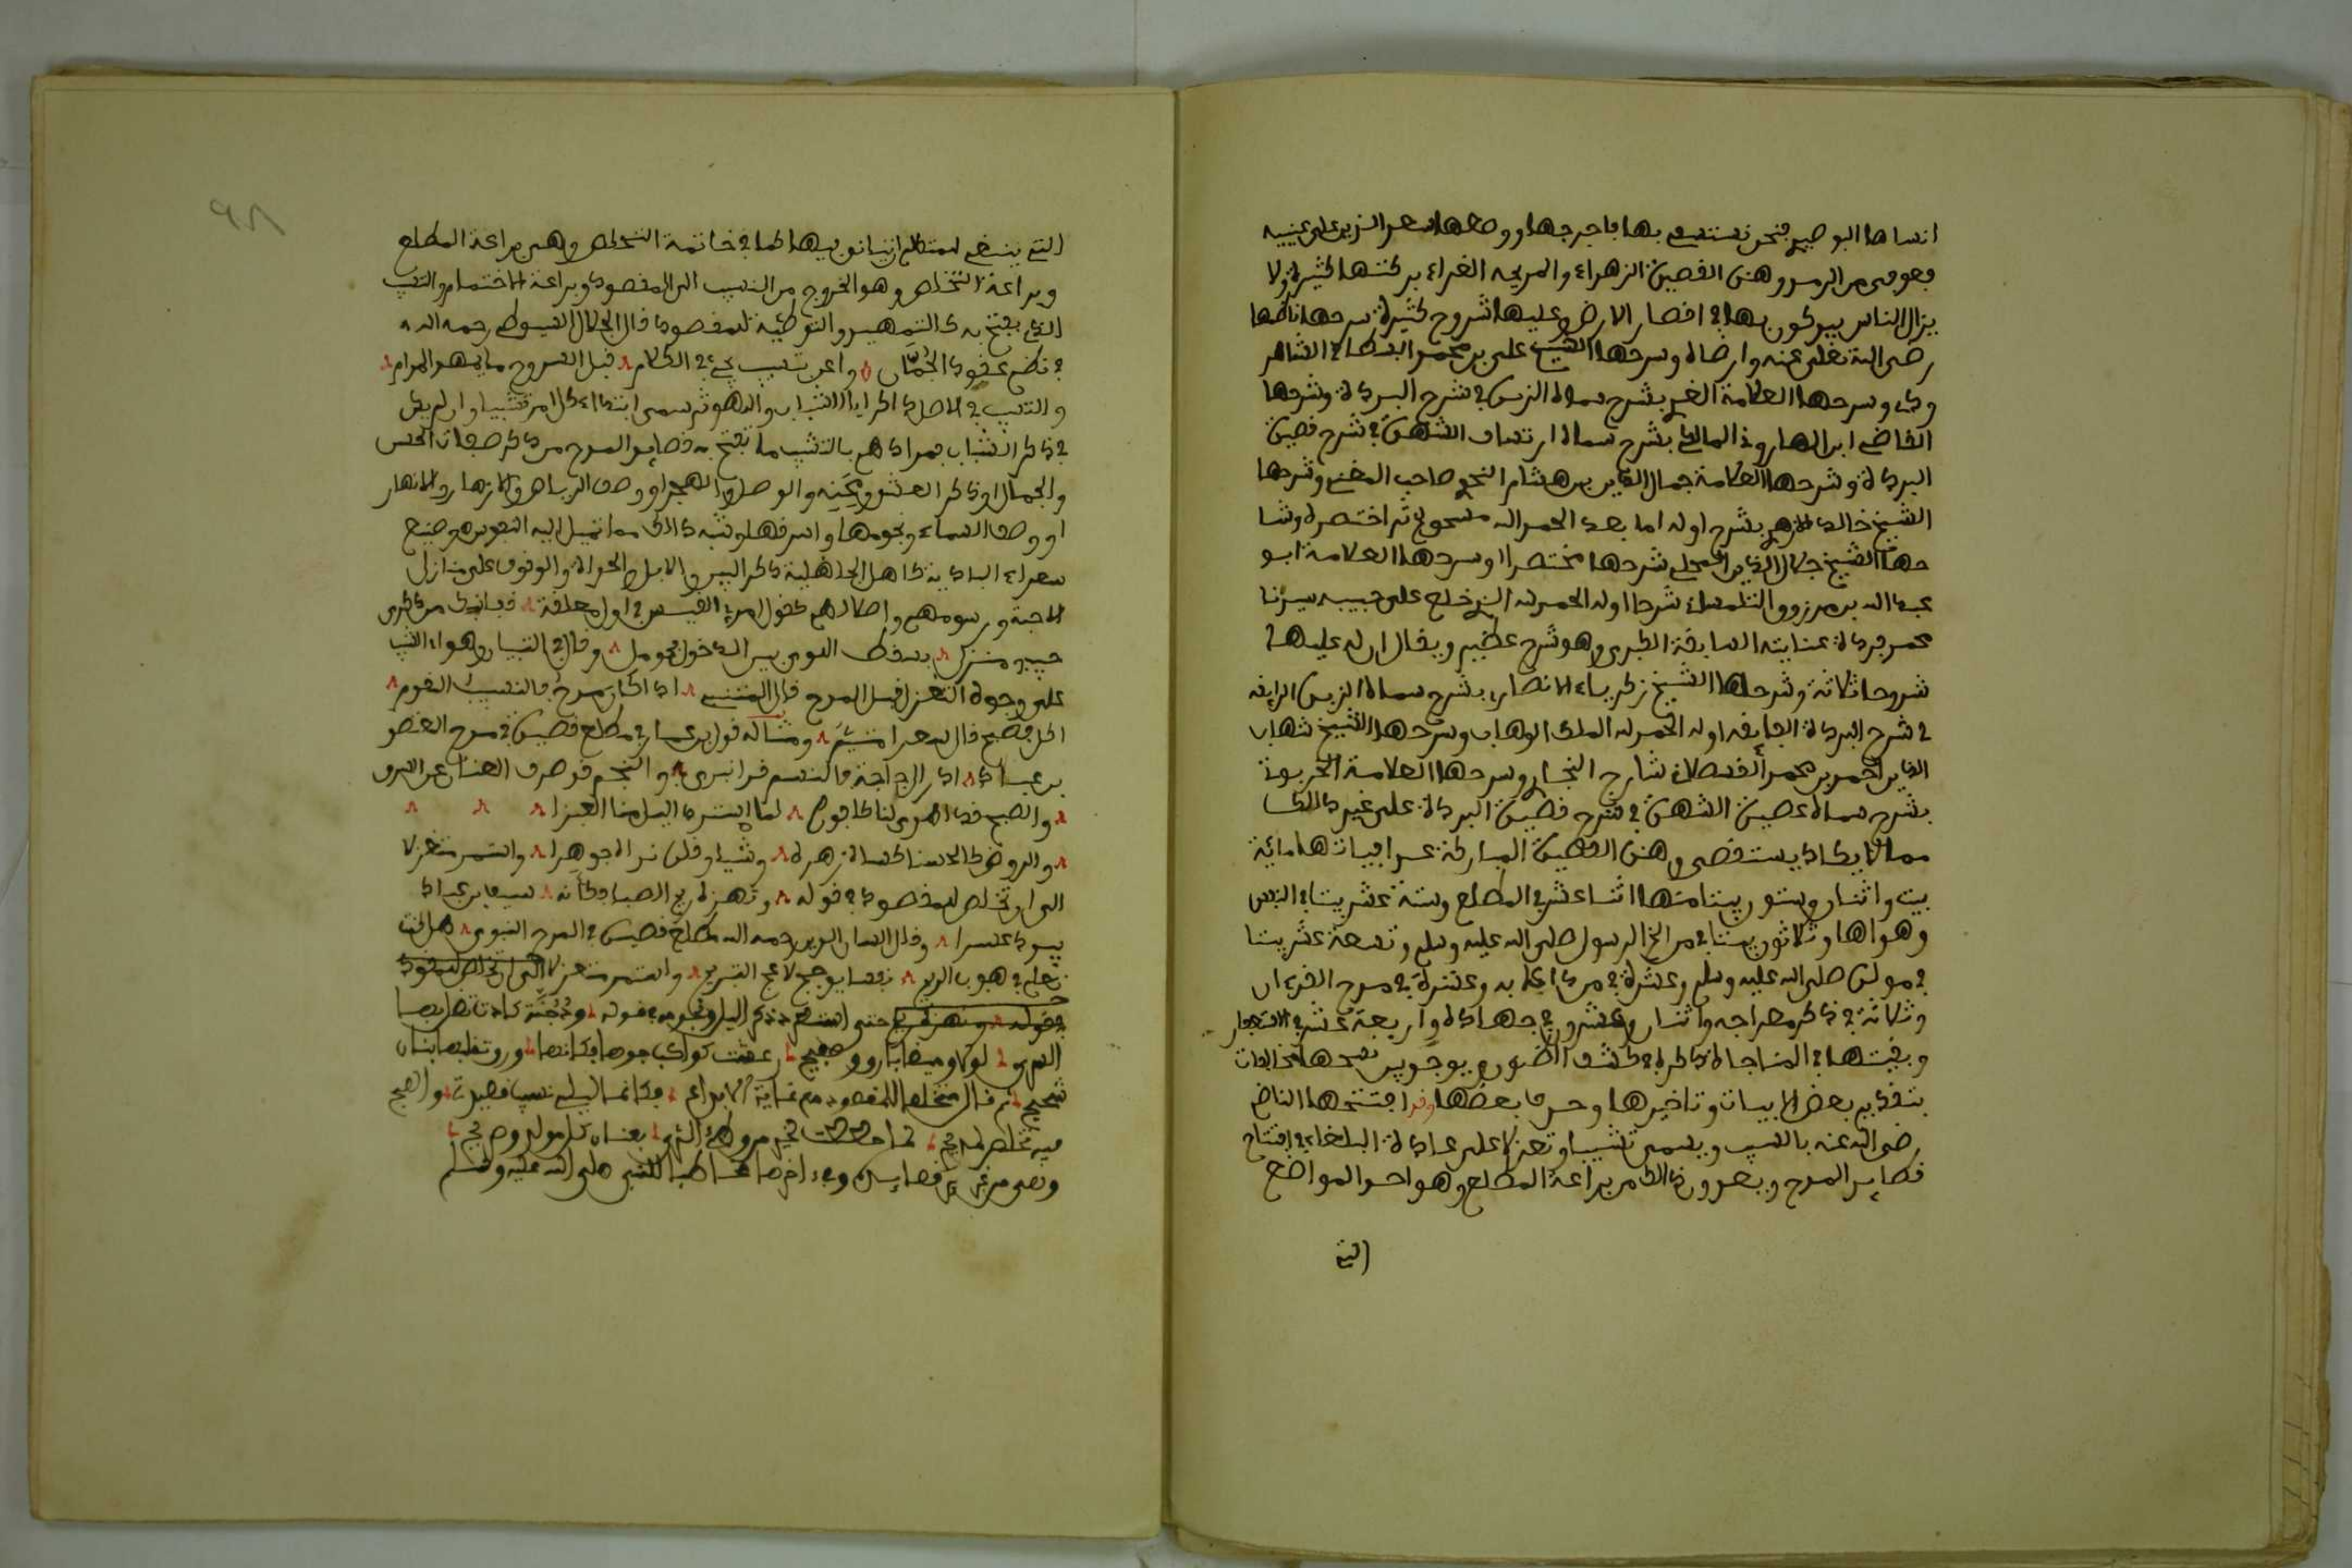 انشاها البوصيري فنحن نستشفي بها فاخرجها ووضعها سعد الدين على عينيه
فعوفي من الرمد وهذه القصيدة الزهراء والمديحة الغراء بركتها كثيرة ولا
يزال الناس يتبركون بها في اقطار الارض وعليها شروح كثيرة شرحها ناظمها
رضي الله تعلى عنه وارضاه وشرحها الشيخ علي بن محمد البسطامي الشاهر
ودي وشرحها العلامة بشرح سماه في شرح البردة وشرحها
القاضي المالكي بشرح سماه ارتشاف الشهدة في شرح قصيدة
البردة وشرحها العلامة جمال الدين بن هشام النحوي صاحب المغني وشرحها
الشيخ خالد الازهري بشرح اوله اما بعد الحمد لله ثم اختصره وشر
حها الشيخ جلال الدين المحلي شرحا مختصرا وشرحها العلامة ابو
عبد الله بن مرزوق التلمساني شرحا اوله الحمد لله الذي خلع على حبيبه سيدنا
محمد بردة عنايته السابقة الكبرى وهو شرح عظيم ويقال ان له عليها
شروحا ثلاثة وشرحها الشيخ زكرياء الانصاري بشرح سماه الزبدة الرايقة
في شرح البردة الفايقة اوله الحمد لله الملك الوهاب وشرحها الشيخ شهاب
الدين احمد بن محمد القسطلاني شارح البخاري وشرحها العلامة الخربوتي
بشرح سماه عصيدة الشهدة في شرح قصيدة البردة على غير ذلك
مما لا يكاد يستقصى وهذه القصيدة المباركة عدد ابياتها مائة
بيت واثنان وستون بيتا منها اثنا عشر في المطلع وستة عشر بيتا في النفس
وهواها وثلاثون بيتا في مدائح الرسول صلى الله عليه وسلم وتسعة عشر بيتا
في مولده صلى الله عليه وسلم وعشرة في من دعا به وعشرة في مدح القرءان
وثلاثة في ذكر معراجه واثنان وعشرون في جهاده واربعة عشر في الاستغفار
وبقيتها في المناجاة ذكره في كشف الظنون ويوجد في نسخها مخالفات
بتقديم بعض الابيات وتاخيرها وحذف بعضها وقد افتتحها الناظم
رضي الله عنه بالنسيب ويسمى تشبيبا وتغزلا على عادة البلغاء في افتتاح
قصايد المدح ويعدون ذلك من براعة المطلع وهو احد المواضع
التي
التي ينبغي للمتكلم ان يتانق فيها كما في خاتمة التلخيص وهي براعة المطلع
وبراعة التخلص وهو الخروج من النسيب الى المقصود وبراعة الاختتام والنسيب
الذي يفتتح به كالتمهيد والتوطئة للمقصود قال الجلال السيوطي رحمه الله
في نظم عقود الجمان وادعى تشبيب يجيء في الكلام قبل الشروع ما يهد المرام
والتشبيب في الاصل ذكر ايام الشباب واللهو ثم سمى ابتداء كل امر تشبيبا وان لم يكن
في ذكر الشباب فمرادهم بالتشبيب ما تفتتح به قصايد المدح من ذكر صفات الحسن
والجمال او ذكر العشق ومحنه والوصل والهجر او وصف الرياض والازهار والانهار
او وصف السماء ونجومها واشرافها وشبه ذلك مما تميل اليه النفوس وصنيع
شعراء البادية كاهل الجاهلية ذكر البيد والابل والحداة والوقوف على منازل
الاحبة ورسومهم واطلالهم كقول امرئ القيس في اول معلقته قفا نبك من ذكرى
حبيب ومنزل بسقط اللوى بين الدخول فحومل وقال في التبيان وهواء الشب
على وجوه التغزل قبل المدح قال المتنبي اذا كان مدح فالنسيب المقدم
اكل فصيح قال شعرا متيم ومثاله قول ابن عمار في مطلع قصيدة في مدح المعتضد
بن عباد ادر الزجاجة فالنسيم قد انبرى والنجم قد صرف العنان عن السرى
والصبح قد اهدى لنا كافوره لما استرد الليل منا العنبرا
والروض كالحسنا كساه زهره وشيا وقلده نداه جوهرا واستمر متغزلا
الى ان تخلص للمقصود في قوله وتهزه ريح الصبا فكانه سيف ابن عباد
يبدد عسكرا وقال لسان الدين رحمه الله مطلع قصيدة في المدح النبوي هل كنت
تعلم في هبوب الريح نفسا يوجج لاعج التبريح واستمر متغزلا الى ان تخلص للمقصود
حتى الليل ونجومه بقوله ودجنة كادت تضل بها
السرى لولا وميضا بارق وصفيح رعشت كواكب جوها فكانها ورق تقلبها بنان
شحيح ثم قال متخلصا للمقصود مع غاية الابداع فكانما الليل نسيب قصيدتي والصبح
فيه تخلص لمديحي لما حططت لخير من وطئ الثرى بعنان كل مولد وصريح
وهي من غرر قصايده وفي ءاخرها مخاطبا للنبي صلى الله عليه وسلم